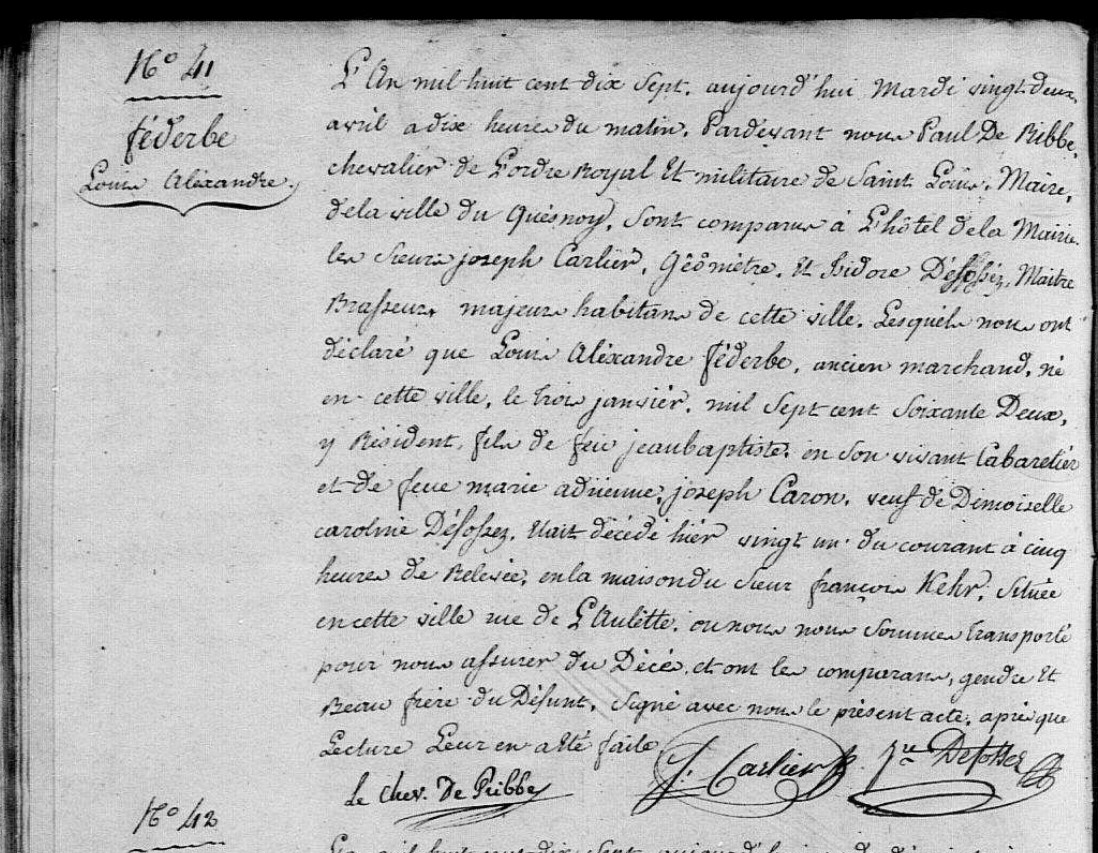 N° 41
féderbe
Louis Aléxandre.
L'An mil huit cent dix sept, aujourd'hui Mardi vingt deux
avril a dix heures du matin, Pardevant nous Paul De Ribbe,
chevalier de L'ordre Royal Et militaire de Saint Louis, Maire,
dela ville du Quésnoy, sont comparus à L'hôtel dela Mairie
les Sieurs joseph Carlier, Géomètre, Et Isidore Désfossez, Maitre
Brasseur, majeurs habitans de cette ville, Lesquels nous ont
déclaré que Louis Aléxandre féderbe, ancien marchand, né
en cette ville, le trois janvier, mil sept cent soixante Deux,
y Résident, fils de feu jeanbaptiste, en son vivant Cabaretier
et de feue marie adrienne, joseph Caron, veuf de Dimoiselle
caroline Désfossez, Etait décédé hiér vingt un du courant à cinq
heures de Relevée, en la maison du Sieur françois Kehr, située
en cette ville rue de L'Aulette, ou nous nous sommes transporté
pour nous assurer du Décés, et ont les comparans, gendre Et
Beau frère du Défunt, signé avec nous le présent acte, après que
Lecture Leur en a Eté faite
J. Carlier Jre Defossez
le chev. De Ribbe
N° 42